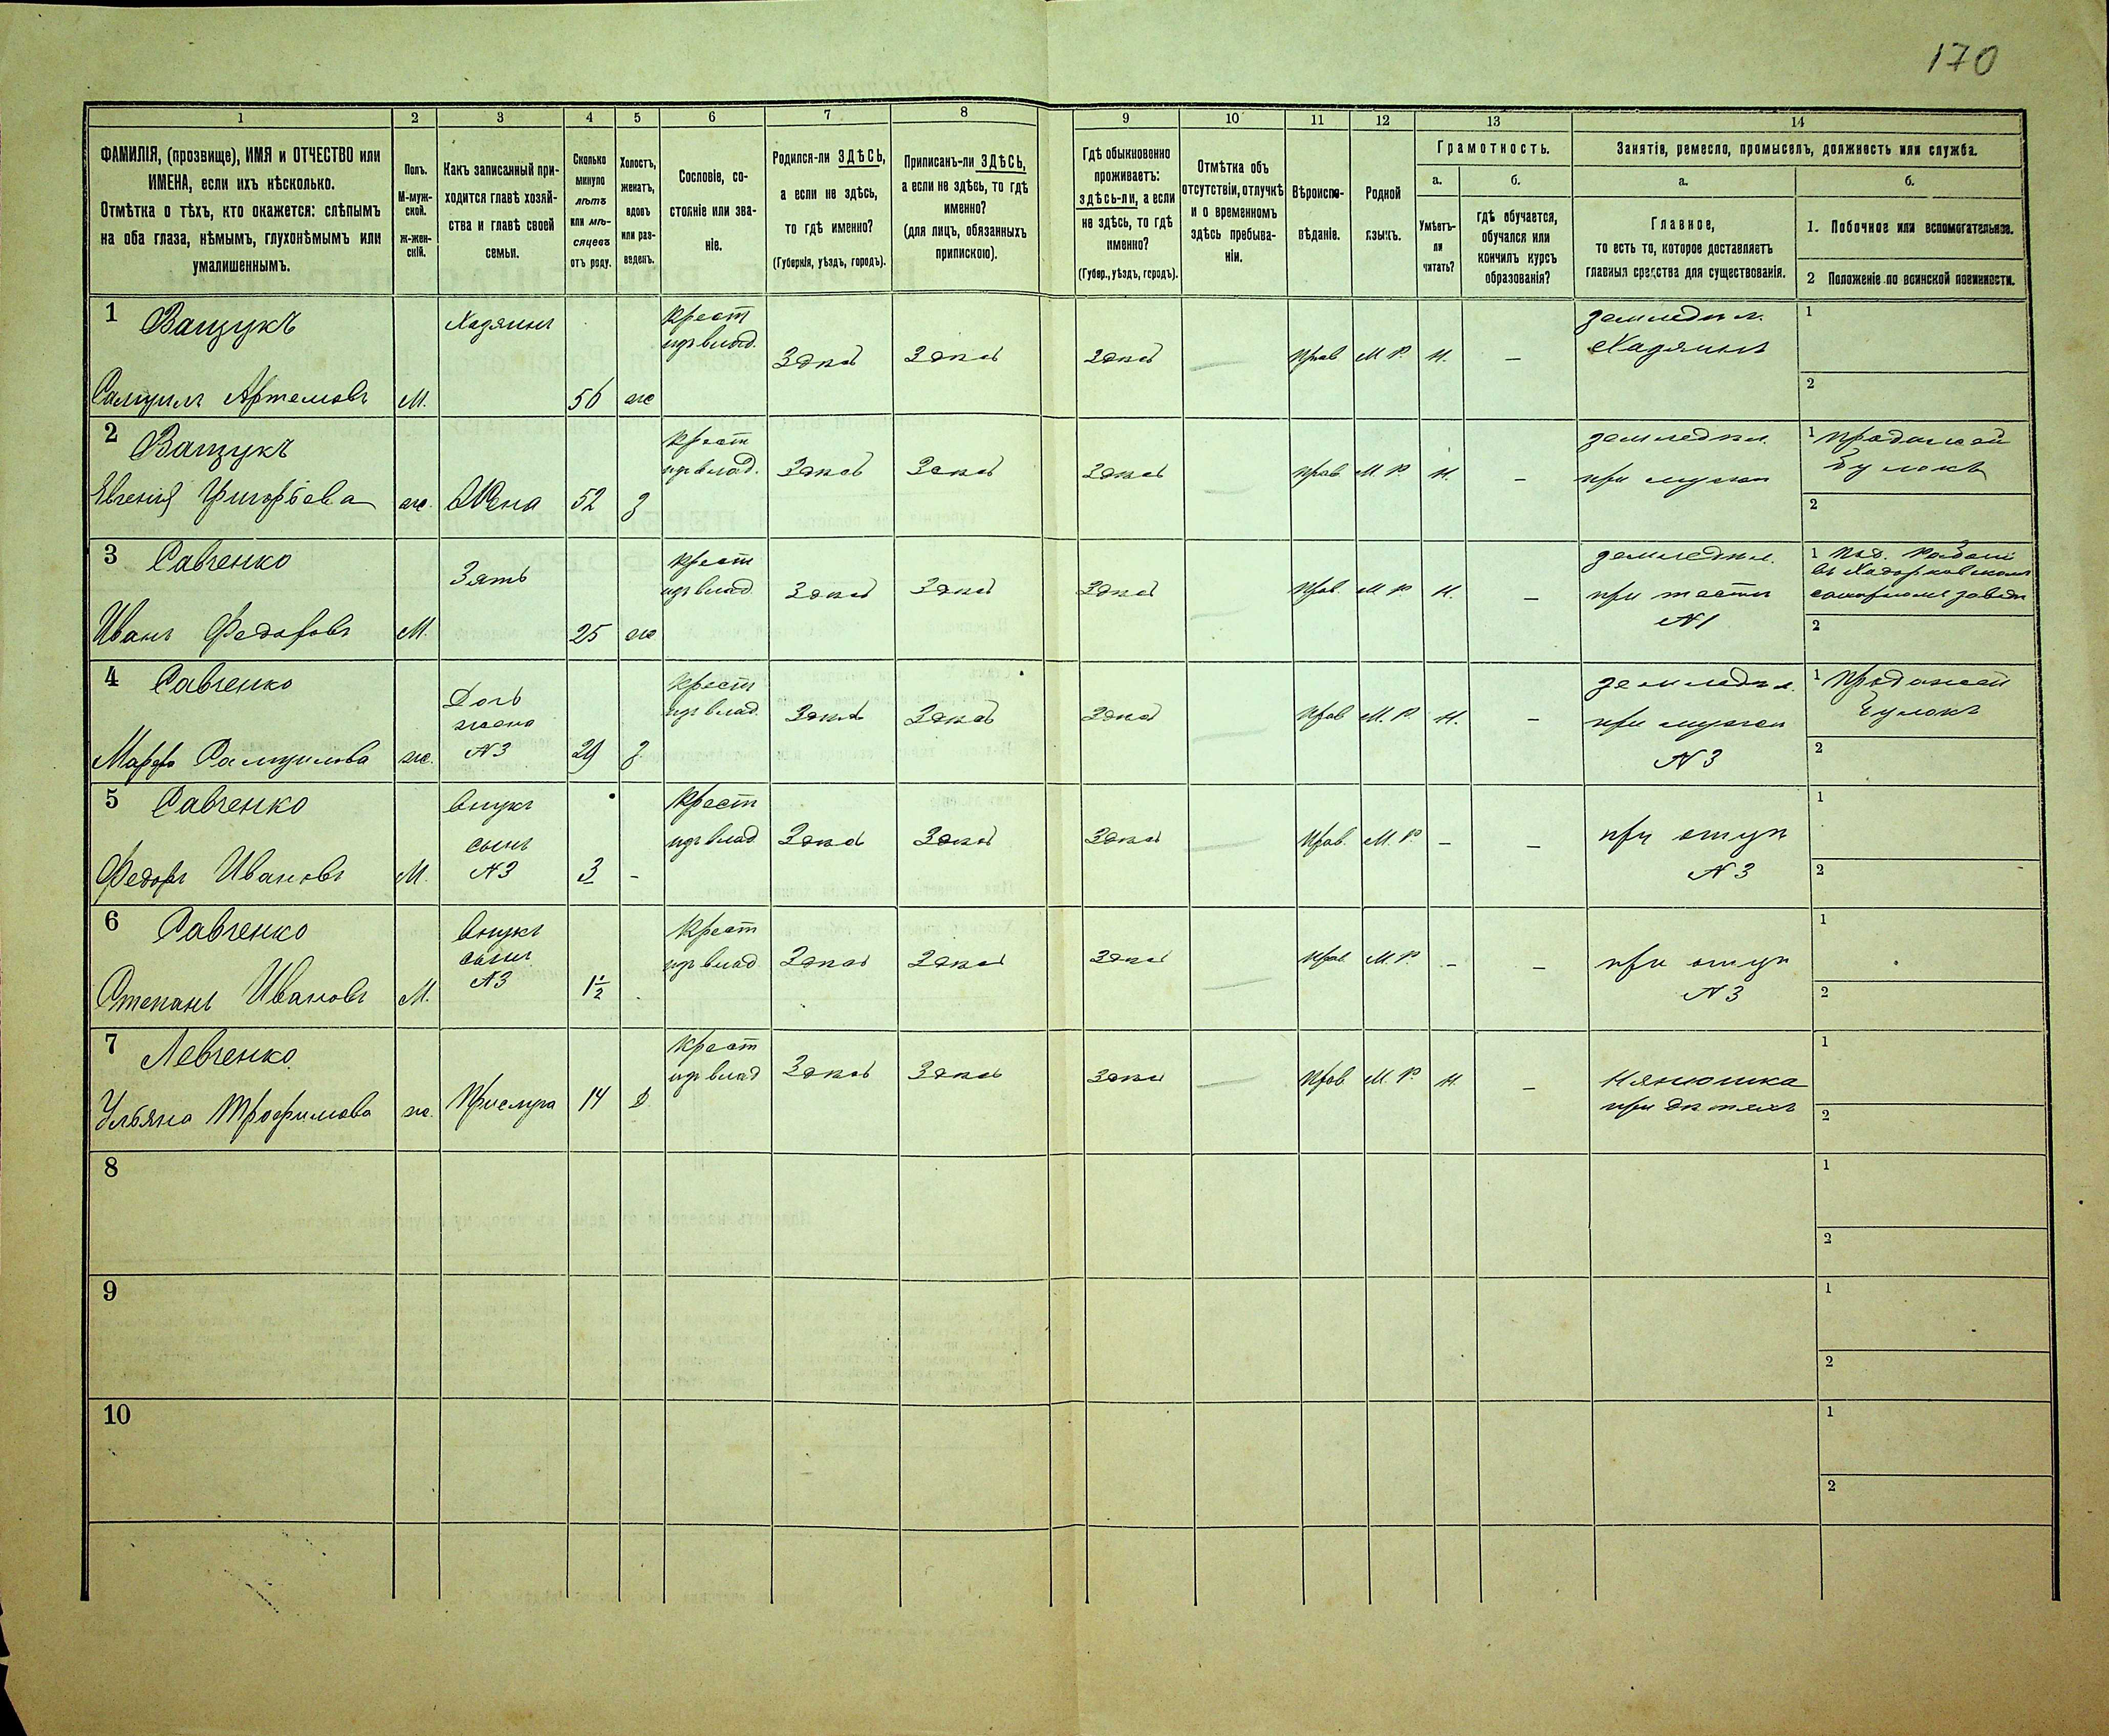 170
1 2 3 4 5 6 7 8 9 10 11 12 13 14
ФАМИЛІЯ, (прозвище), ИМЯ и ОТЧЕСТВО или
ИМЕНА, если ихъ нѣсколько.
Отмѣтка о тѣхъ, кто окажется: слѣпымъ
на оба глаза, нѣмымъ, глухонѣмымъ или
умалишеннымъ.
Полъ.
М-муж-
ской.
ж-жен-
скій.
Какъ записанный при-
ходится главѣ хозяй-
ства и главѣ своей
семьи.
Сколько
минуло
лѣтъ
или мѣ-
сяцевъ
отъ роду.
Холостъ,
женатъ,
вдовъ
или раз-
веденъ.
Сословіе, со-
стояніе или зва-
ніе.
Родился-ли ЗДѢСЬ,
а если не здѣсь,
то гдѣ именно?
(Губернія, уѣздъ, городъ).
Приписанъ-ли ЗДѢСЬ,
а если не здѣсь, то гдѣ
именно?
(для лицъ, обязанныхъ
припискою).
Гдѣ обыкновенно
проживаетъ:
здѣсь-ли, а если
не здѣсь, то гдѣ
именно?
(Губер., уѣздъ, городъ).
Отмѣтка объ
отсутствіи, отлучкѣ
и о временномъ
здѣсь пребыва-
ніи.
Вѣроиспо-
вѣданіе.
Родной
языкъ.
Грамотность.
а.
Умѣетъ-
ли
читать?
б.
гдѣ обучается,
обучался или
кончилъ курсъ
образованія?
Занятіе, ремесло, промыселъ, должность или служба.
а.
Главное,
то есть то, которое доставляетъ
главныя средства для существованія.
б.
1. Побочное или вспомогательное.
2 Положеніе по воинской повинности.
1 Ващукъ
Самуилъ Артемовъ
М.
Хазяинъ
56
ж
Крест
изъ влад.
Здѣсь
Здѣсь
Здѣсь
—
Прав
М. Р.
Н.
—
земледѣл.
Хазяинъ
1
2
2 Ващукъ
Евгенія Григорьева
ж.
Жена
52
З
Крест
изъ влад.
Здѣсь
Здѣсь
Здѣсь
—
Прав
М. Р.
Н.
—
земледѣл
при мужѣ
1 Продажей
булокъ
2
3 Савченко
Иванъ Федоровъ
М.
Зять
25
ж
Крест
изъ влад
Здѣсь
Здѣсь
Здѣсь
Прав.
М. Р.
Н.
—
земледѣл.
при тестѣ
№1
1
въ Ходорковскомъ
сахарномъ завод
2
4 Савченко
Марфа Самуилова
ж.
Дочь
жена
№3
29
З
Крест
изъ влад.
Здѣсь
Здѣсь
Здѣсь
Прав
М. Р.
Н.
—
земледѣл.
при мужѣ
№3
1 Продажей
булокъ
2
5 Савченко
Федоръ Ивановъ
М.
Внукъ
сынъ
№3
3
-
Крест
изъ влад
Здѣсь
Здѣсь
Здѣсь
—
Прав.
М. Р.
—
—
при отцѣ
№3
1
2
6 Савченко
Степанъ Ивановъ
М.
Внукъ
сынъ
№3
1½
Крест
изъ влад
Здѣсь
Здѣсь
Здѣсь
—
Прав
М. Р.
—
—
при отцѣ
№3
1
2
7 Левченко
Ульяна Трофимова
ж.
Прислуга
14
Д
Крест
изъ влад
Здѣсь
Здѣсь
Здѣсь
—
Прав
М. Р.
Н
—
Нянюшка
при дѣтяхъ
1
2
8
1
2
9
1
2
10
1
2